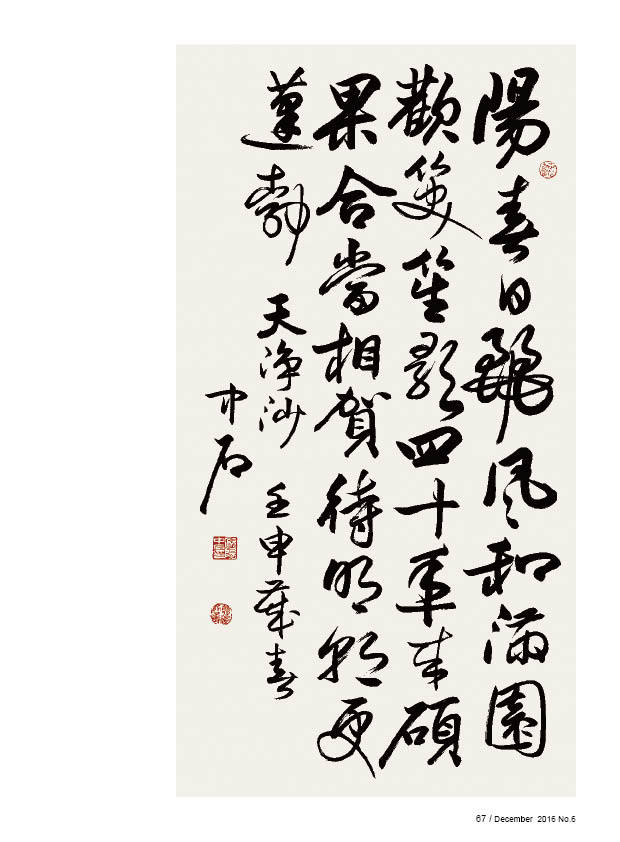 陽春日麗風和滿園
歡笑笙歌四十年來碩
果合當相賀待明朝更
蓬勃 天淨沙 壬申歲春
中石
67 / December 2016 No.6